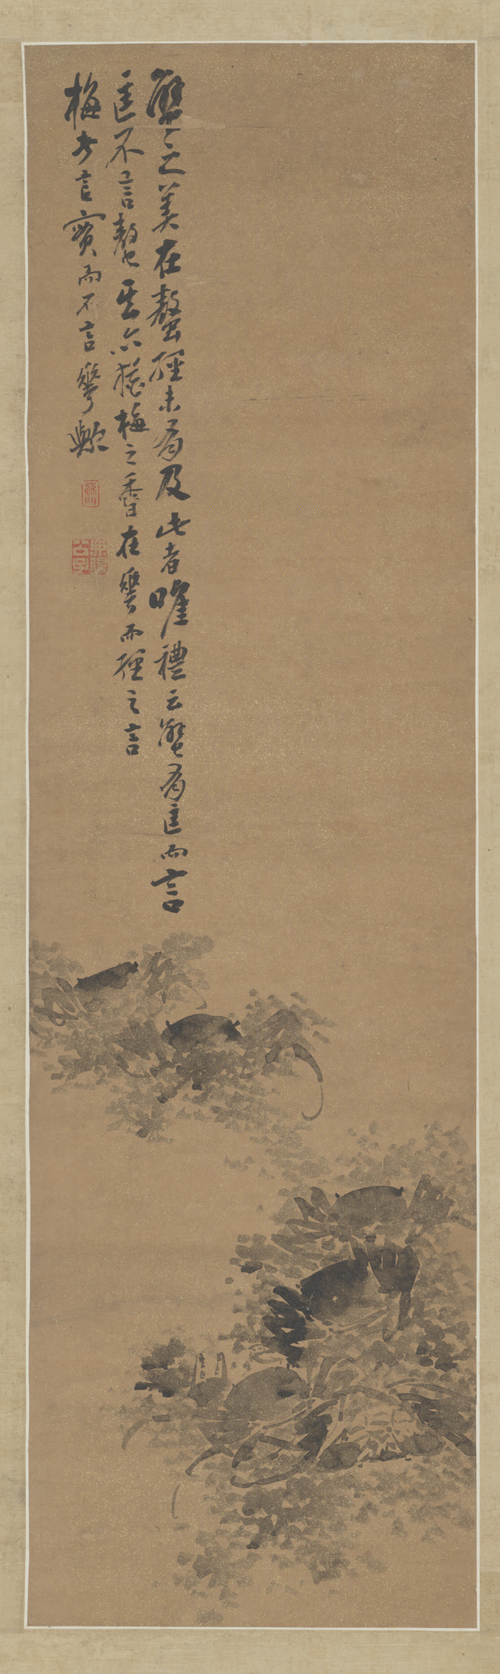 蟹之美在螯經未有及此者唯禮云蟹有匡而言
匡不言螯其亦猶梅之香在華而經之言
梅言實而不言華歟